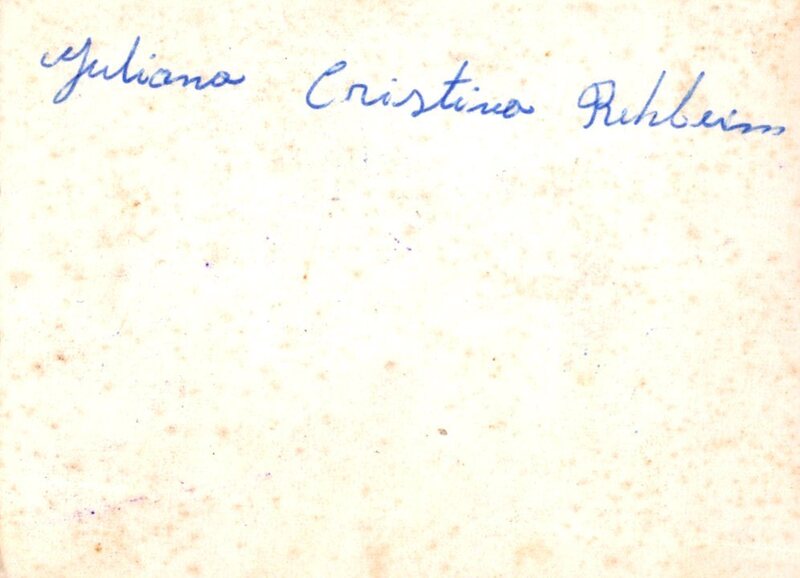 Juliana Cristina Rehbeim